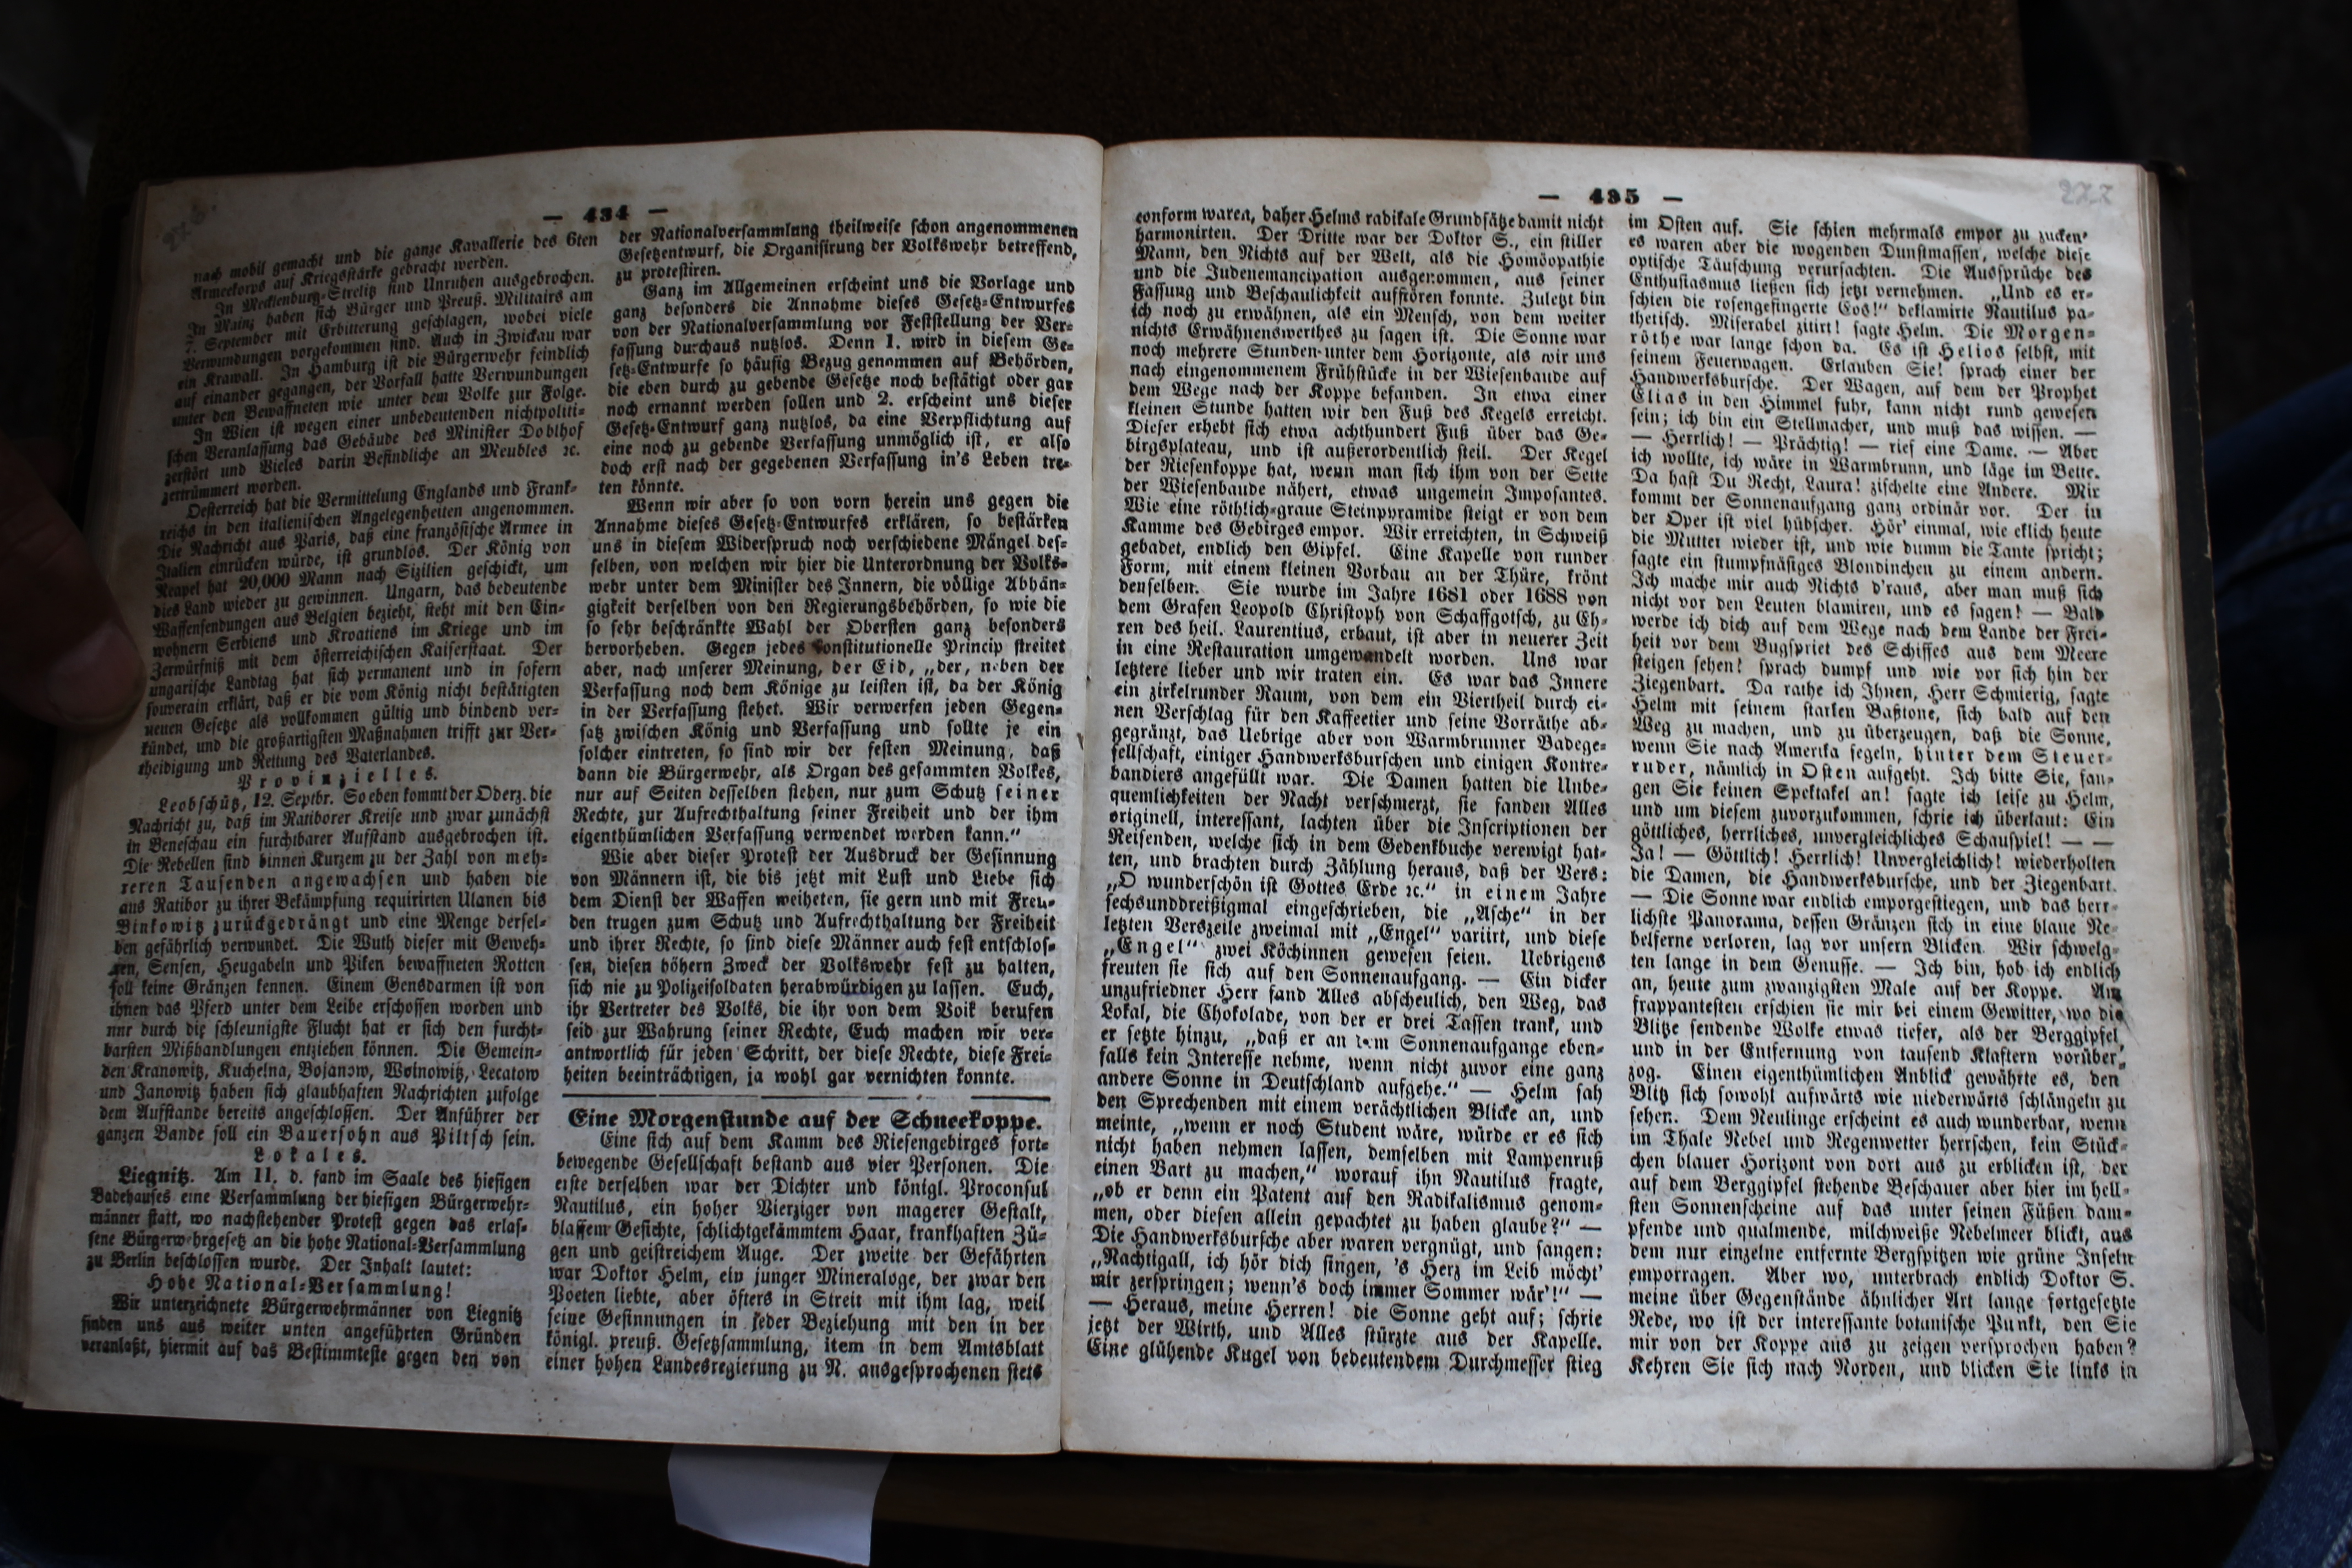 — 434 —
nach mobil gemacht und die ganze Kavallerie des 6ten
Armeekorps auf Kriegsstärke gebracht werden.
In Mecklenburg-Strelitz sind Unruhen ausgebrochen.
In Mainz haben sich Bürger und Preuß. Militairs am
7. September mit Erbitterung geschlagen, wobei viele
Verwundungen vorgekommen sind. Auch in Zwickau war
ein Krawall. In Hamburg ist die Bürgerwehr feindlich
auf einander gegangen, der Vorfall hatte Verwundungen
unter den Bewaffneten wie unter dem Volke zur Folge.
In Wien ist wegen einer unbedeutenden nichtpoliti-
schen Veranlassung das Gebäude des Minister Doblhof
zerstört und Vieles darin Befindliche an Meubles ꝛc.
zertrümmert worden.
Oesterreich hat die Vermittelung Englands und Frank-
reichs in den italienischen Angelegenheiten angenommen.
Die Nachricht aus Paris, daß eine französische Armee in
Italien einrücken würde, ist grundlos. Der König von
Neapel hat 20,000 Mann nach Sizilien geschickt, um
dies Land wieder zu gewinnen. Ungarn, das bedeutende
Waffensendungen aus Belgien bezieht, steht mit den Ein-
wohnern Serbiens und Kroatiens im Kriege und im
Zerwürfniß mit dem österreichischen Kaiserstaat. Der
ungarische Landtag hat sich permanent und in sofern
souverain erklärt, daß er die vom König nicht bestätigten
neuen Gesetze als vollkommen gültig und bindend ver-
kündet, und die großartigsten Maßnahmen trifft zur Ver-
theidigung und Rettung des Vaterlandes.
Provinzielles.
Leobschütz, 12. Septbr. So eben kommt der Oberz. die
Nachricht zu, daß im Ratiborer Kreise und zwar zunächst
in Beneschau ein furchtbarer Aufstand ausgebrochen ist.
Die Rebellen sind binnen Kurzem zu der Zahl von meh-
reren Tausenden angewachsen und haben die
aus Ratibor zu ihrer Bekämpfung requirirten Ulanen bis
Binkowitz zurückgedrängt und eine Menge dersel-
ben gefährlich verwundet. Die Wuth dieser mit Geweh-
ren, Sensen, Heugabeln und Piken bewaffneten Rotten
soll keine Gränzen kennen. Einem Gensdarmen ist von
ihnen das Pferd unter dem Leibe erschossen worden und
nur durch die schleunigste Flucht hat er sich den furcht-
barsten Mißhandlungen entziehen können. Die Gemein-
den Kranowitz, Kuchelna, Bojanow, Woinowitz, Lecatow
und Janowitz haben sich glaubhaften Nachrichten zufolge
dem Aufstande bereits angeschlossen. Der Anführer der
ganzen Bande soll ein Bauersohn aus Piltsch sein.
Lokales.
Liegnitz. Am 11. d. fand im Saale des hiesigen
Badehauses eine Versammlung der hiesigen Bürgerwehr-
männer statt, wo nachstehender Protest gegen das erlas-
sene Bürgerwehrgesetz an die hohe National-Versammlung
zu Berlin beschlossen wurde. Der Inhalt lautet:
Hohe National-Versammlung!
Wir unterzeichnete Bürgerwehrmänner von Liegnitz
finden uns aus weiter unten angeführten Gründen
veranlaßt, hiermit auf das Bestimmteste gegen den von
der Nationalversammlung theilweise schon angenommenen
Gesetzentwurf, die Organisirung der Volkswehr betreffend,
zu protestiren.
Ganz im Allgemeinen erscheint uns die Vorlage und
ganz besonders die Annahme dieses Gesetz-Entwurfes
von der Nationalversammlung vor Feststellung der Ver-
fassung durchaus nutzlos. Denn 1. wird in diesem Ge-
setz-Entwurfe so häufig Bezug genommen auf Behörden,
die eben durch zu gebende Gesetze noch bestätigt oder gar
noch ernannt werden sollen und 2. erscheint uns dieser
Gesetz-Entwurf ganz nutzlos, da eine Verpflichtung auf
eine noch zu gebende Verfassung unmöglich ist, er also
doch erst nach der gegebenen Verfassung in's Leben tre-
ten könnte.
Wenn wir aber so von vorn herein uns gegen die
Annahme dieses Gesetz-Entwurfes erklären, so bestärken
uns in diesem Widerspruch noch verschiedene Mängel des-
selben, von welchen wir hier die Unterordnung der Volks-
wehr unter dem Minister des Innern, die völlige Abhän-
gigkeit derselben von den Regierungsbehörden, so wie die
so sehr beschränkte Wahl der Obersten ganz besonders
hervorheben. Gegen jedes konstitutionelle Princip streitet
aber, nach unserer Meinung, der Eid, „der, neben der
Verfassung noch dem Könige zu leisten ist, da der König
in der Verfassung stehet. Wir verwerfen jeden Gegen-
satz zwischen König und Verfassung und sollte je ein
solcher eintreten, so sind wir der festen Meinung, daß
dann die Bürgerwehr, als Organ des gesammten Volkes,
nur auf Seiten desselben stehen, nur zum Schutz seiner
Rechte, zur Aufrechthaltung seiner Freiheit und der ihm
eigenthümlichen Verfassung verwendet werden kann.“
Wie aber dieser Protest der Ausdruck der Gesinnung
von Männern ist, die bis jetzt mit Lust und Liebe sich
dem Dienst der Waffen weiheten, sie gern und mit Freu-
den trugen zum Schutz und Aufrechthaltung der Freiheit
und ihrer Rechte, so sind diese Männer auch fest entschlos-
sen, diesen höhern Zweck der Volkswehr fest zu halten,
sich nie zu Polizeisoldaten herabwürdigen zu lassen. Euch,
ihr Vertreter des Volks, die ihr von dem Volk berufen
seid zur Wahrung seiner Rechte, Euch machen wir ver-
antwortlich für jeden Schritt, der diese Rechte, diese Frei-
heiten beeinträchtigen, ja wohl gar vernichten konnte.
Eine Morgenstunde auf der Schneekoppe.
Eine sich auf dem Kamm des Riesengebirges fort-
bewegende Gesellschaft bestand aus vier Personen. Die
erste derselben war der Dichter und königl. Proconsul
Nautilus, ein hoher Vierziger von magerer Gestalt,
blassem Gesichte, schlichtgekämmtem Haar, krankhaften Zü-
gen und geistreichem Auge. Der zweite der Gefährten
war Doktor Helm, ein junger Mineraloge, der zwar den
Poeten liebte, aber öfters in Streit mit ihm lag, weil
seine Gesinnungen in jeder Beziehung mit den in der
königl. preuß. Gesetzsammlung, item in dem Amtsblatt
einer hohen Landesregierung zu N. ausgesprochenen stets
— 435 —
277
conform waren, daher Helms radikale Grundsätze damit nicht
harmonirten. Der Dritte war der Doktor S., ein stiller
Mann, den Nichts auf der Welt, als die Homöopathie
und die Judenemancipation ausgenommen, aus seiner
Fassung und Beschaulichkeit aufstören konnte. Zuletzt bin
ich noch zu erwähnen, als ein Mensch, von dem weiter
nichts Erwähnenswerthes zu sagen ist. Die Sonne war
noch mehrere Stunden unter dem Horizonte, als wir uns
nach eingenommenem Frühstücke in der Wiesenbaude auf
dem Wege nach der Koppe befanden. In etwa einer
kleinen Stunde hatten wir den Fuß des Kegels erreicht.
Dieser erhebt sich etwa achthundert Fuß über das Ge-
birgsplateau, und ist außerordentlich steil. Der Kegel
der Riesenkoppe hat, wenn man sich ihm von der Seite
der Wiesenbaude nähert, etwas ungemein Imposantes.
Wie eine röthlich-graue Steinpyramide steigt er von dem
Kamme des Gebirges empor. Wir erreichten, in Schweiß
gebadet, endlich den Gipfel. Eine Kapelle von runder
Form, mit einem kleinen Vorbau an der Thüre, krönt
denselben. Sie wurde im Jahre 1681 oder 1688 von
dem Grafen Leopold Christoph von Schaffgotsch, zu Eh-
ren des heil. Laurentius, erbaut, ist aber in neuerer Zeit
in eine Restauration umgewandelt worden. Uns war
letztere lieber und wir traten ein. Es war das Innere
ein zirkelrunder Raum, von dem ein Viertheil durch ei-
nen Verschlag für den Kaffeetier und seine Vorräthe ab-
gegränzt, das Uebrige aber von Warmbrunner Badege-
sellschaft, einiger Handwerksburschen und einigen Kontre-
bandiers angefüllt war. Die Damen hatten die Unbe-
quemlichkeiten der Nacht verschmerzt, sie fanden Alles
originell, interessant, lachten über die Inscriptionen der
Reisenden, welche sich in dem Gedenkbuche verewigt hat-
ten, und brachten durch Zählung heraus, daß der Vers:
„O wunderschön ist Gottes Erde ꝛc.“ in einem Jahre
sechsunddreißigmal eingeschrieben, die „Asche“ in der
letzten Verszeile zweimal mit „Engel“ variirt, und diese
„Engel“ zwei Köchinnen gewesen seien. Uebrigens
freuten sie sich auf den Sonnenaufgang. — Ein dicker
unzufriedner Herr fand Alles abscheulich, den Weg, das
Lokal, die Chokolade, von der er drei Tassen trank, und
er setzte hinzu, „daß er an dem Sonnenaufgange eben-
falls kein Interesse nehme, wenn nicht zuvor eine ganz
andere Sonne in Deutschland aufgehe.“ — Helm sah
den Sprechenden mit einem verächtlichen Blicke an, und
meinte, „wenn er noch Student wäre, würde er es sich
nicht haben nehmen lassen, demselben mit Lampenruß
einen Bart zu machen,“ worauf ihn Nautilus fragte,
„ob er denn ein Patent auf den Radikalismus genom-
men, oder diesen allein gepachtet zu haben glaube?“ —
Die Handwerksbursche aber waren vergnügt, und sangen:
„Nachtigall, ich hör dich singen, 's Herz im Leib möcht'
mir zerspringen; wenn's doch immer Sommer wär'!“ —
— Heraus, meine Herren! die Sonne geht auf; schrie
jetzt der Wirth, und Alles stürzte aus der Kapelle.
Eine glühende Kugel von bedeutendem Durchmesser stieg
im Osten auf. Sie schien mehrmals empor zu zucken,
es waren aber die wogenden Dunstmassen, welche diese
optische Täuschung verursachten. Die Aussprüche des
Enthusiasmus ließen sich jetzt vernehmen. „Und es er-
schien die rosengefingerte Eos!“ deklamirte Nautilus pa-
thetisch. Miserabel zitirt! sagte Helm. Die Morgen-
röthe war lange schon da. Es ist Helios selbst, mit
seinem Feuerwagen. Erlauben Sie! sprach einer der
Handwerksbursche. Der Wagen, auf dem der Prophet
Elias in den Himmel fuhr, kann nicht rund gewesen
sein; ich bin ein Stellmacher, und muß das wissen. —
— Herrlich! — Prächtig! — rief eine Dame. — Aber
ich wollte, ich wäre in Warmbrunn, und läge im Bette.
Da hast Du Recht, Laura! zischelte eine Andere. Mir
kommt der Sonnenaufgang ganz ordinär vor. Der in
der Oper ist viel hübscher. Hör' einmal, wie eklich heute
die Mutter wieder ist, und wie dumm die Tante spricht;
sagte ein stumpfnäsiges Blondinchen zu einem andern.
Ich mache mir auch Nichts d'raus, aber man muß sich
nicht vor den Leuten blamiren, und es sagen! — Bald
werde ich dich auf dem Wege nach dem Lande der Frei-
heit vor dem Bugspriet des Schiffes aus dem Meere
steigen sehen! sprach dumpf und wie vor sich hin der
Ziegenbart. Da rathe ich Ihnen, Herr Schmierig, sagte
Helm mit seinem starken Baßtone, sich bald auf den
Weg zu machen, und zu überzeugen, daß die Sonne,
wenn Sie nach Amerika segeln, hinter dem Steuer-
ruder, nämlich in Osten aufgeht. Ich bitte Sie, fan-
gen Sie keinen Spektakel an! sagte ich leise zu Helm,
und um diesem zuvorzukommen, schrie ich überlaut: Ein
göttliches, herrliches, unvergleichliches Schauspiel! — —
Ja! — Göttlich! Herrlich! Unvergleichlich! wiederholten
die Damen, die Handwerksbursche, und der Ziegenbart.
— Die Sonne war endlich emporgestiegen, und das herr-
lichste Panorama, dessen Gränzen sich in eine blaue Ne-
belferne verloren, lag vor unsern Blicken. Wir schwelg-
ten lange in dem Genusse. — Ich bin, hob ich endlich
an, heute zum zwanzigsten Male auf der Koppe. Am
frappantesten erschien sie mir bei einem Gewitter, wo die
Blitze sendende Wolke etwas tiefer, als der Berggipfel,
und in der Entfernung von tausend Klaftern vorüber-
zog. Einen eigenthümlichen Anblick gewährte es, den
Blitz sich sowohl aufwärts wie niederwärts schlängeln zu
sehen. Dem Neulinge erscheint es auch wunderbar, wenn
im Thale Nebel und Regenwetter herrschen, kein Stück-
chen blauer Horizont von dort aus zu erblicken ist, der
auf dem Berggipfel stehende Beschauer aber hier im hell-
sten Sonnenscheine auf das unter seinen Füßen dam-
pfende und qualmende, milchweiße Nebelmeer blickt, aus
dem nur einzelne entfernte Bergspitzen wie grüne Inseln
emporragen. Aber wo, unterbrach endlich Doktor S.
meine über Gegenstände ähnlicher Art lange fortgesetzte
Rede, wo ist der interessante botanische Punkt, den Sie
mir von der Koppe aus zu zeigen versprochen haben?
Kehren Sie sich nach Norden, und blicken Sie links in